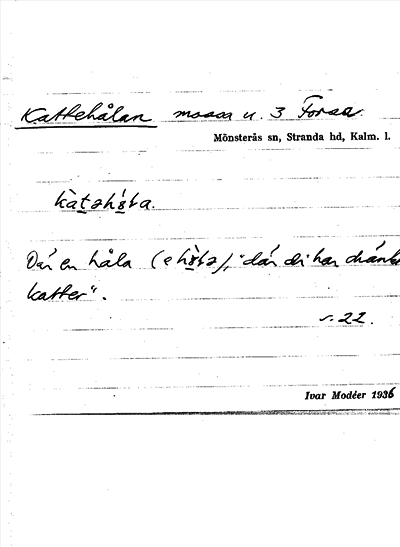 Kattehålan mossa u. 3 Forsa.
Mönsterås sn, Stranda hd, Kalm. l.
kàtəhò̱ɫa.
Där en håla (e hò̱ɫə), "där di har dränkt
katter".
s. 22.
Ivar Modéer 1936